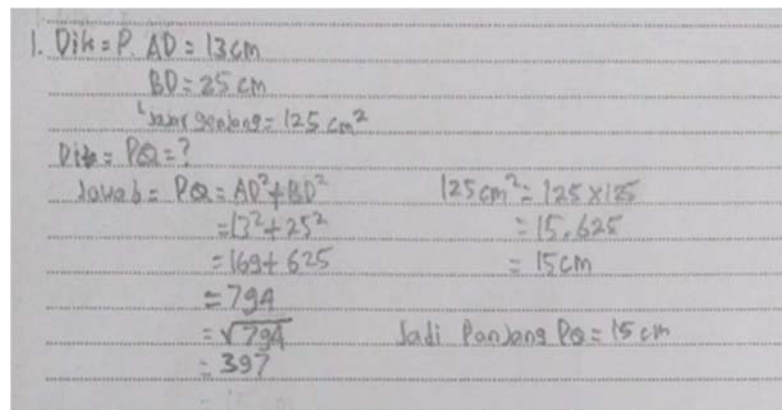 1. Dik = P. AD = 13 cm
BD = 25 cm
L jajar genjang = 125 cm²
Dit = PQ = ?
Jawab = PQ = AD² + BD²
= 13² + 25²
= 169 + 625
= 794
= √794
= 397
125 cm² = 125 x 125
= 15.625
= 15 cm
Jadi Panjang PQ = 15 cm